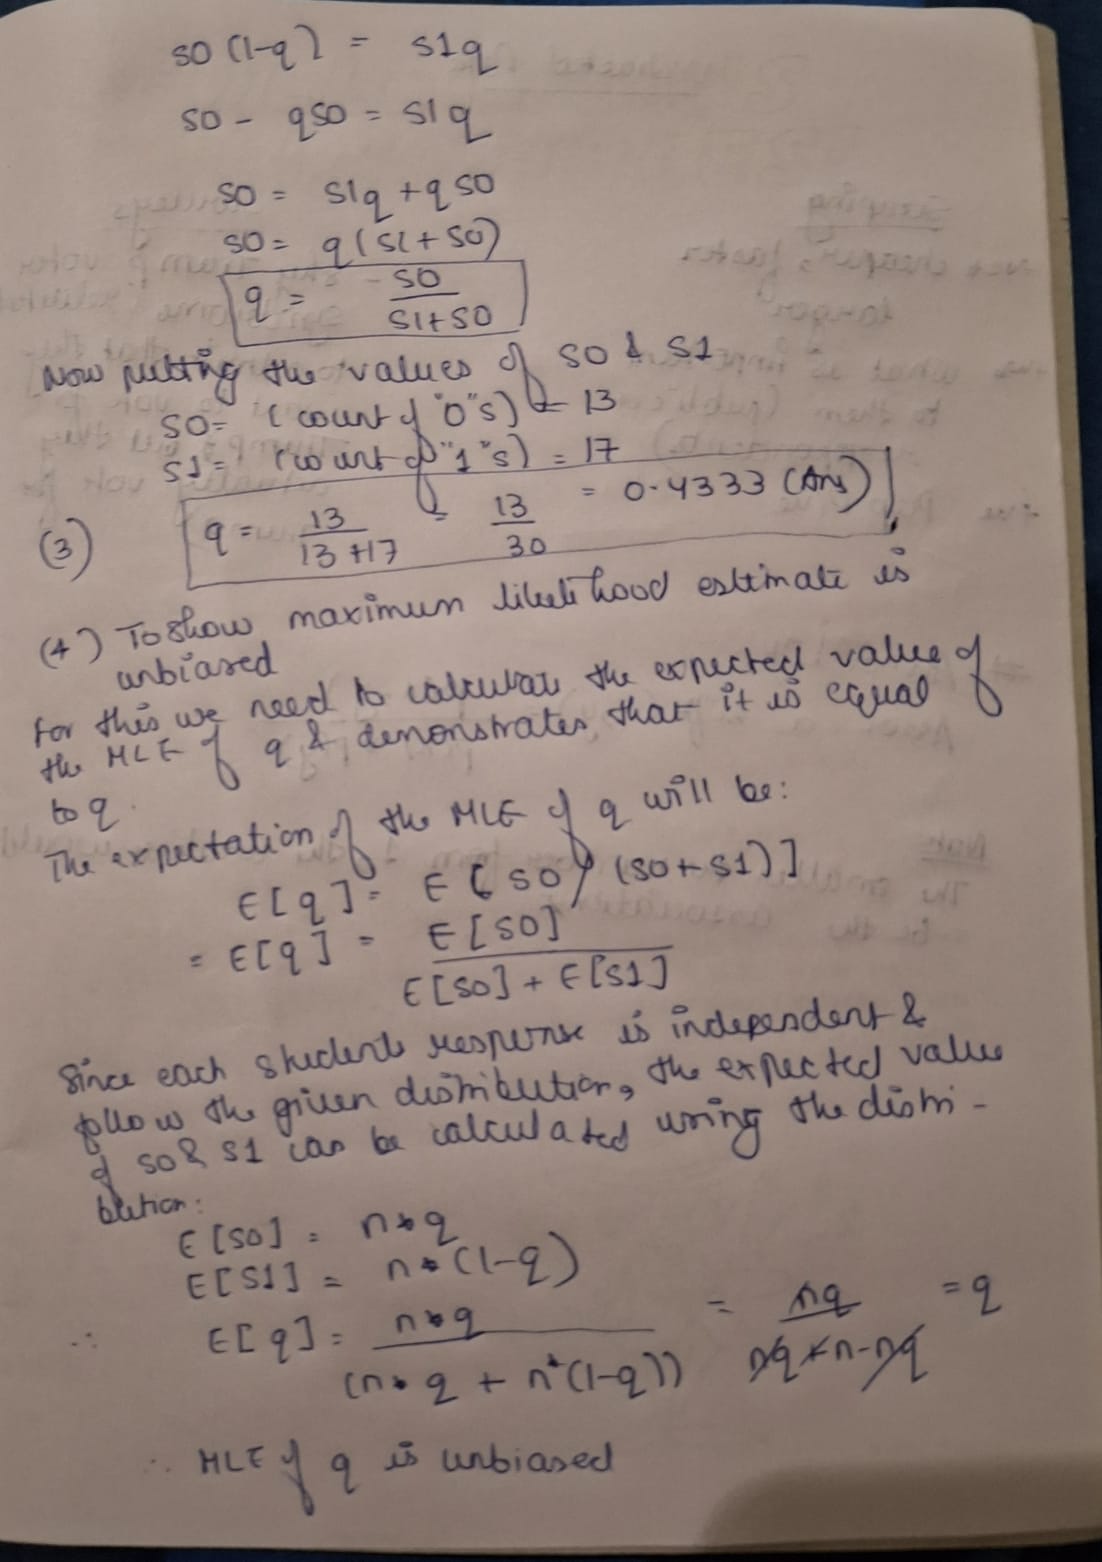 so (1-q) = s1q
so - qso = s1q
so = s1q + qso
so = q(s1+so)
q = so / s1+so
Now putting the values of so & s1
so = (count of "0"s) = 13
s1 = (count of "1"s) = 17
(3) q = 13 / 13+17 = 13 / 30 = 0.4333 (Ans)
(4) To show maximum likelihood estimate is
unbiased
For this we need to calculate the expected value of
the MLE of q & demonstrates that it is equal
to q.
The expectation of the MLE of q will be:
E[q] = E[so / (so+s1)]
= E[q] = E[so] / E[so] + E[s1]
Since each students response is independent &
follow the given distribution, the expected value
of so & s1 can be calculated using the distri-
bution:
E[so] = n*q
E[s1] = n*(1-q)
∴ E[q] = n*q / (n*q + n*(1-q)) = nq / nq+n-nq = q
∴ MLE of q is unbiased